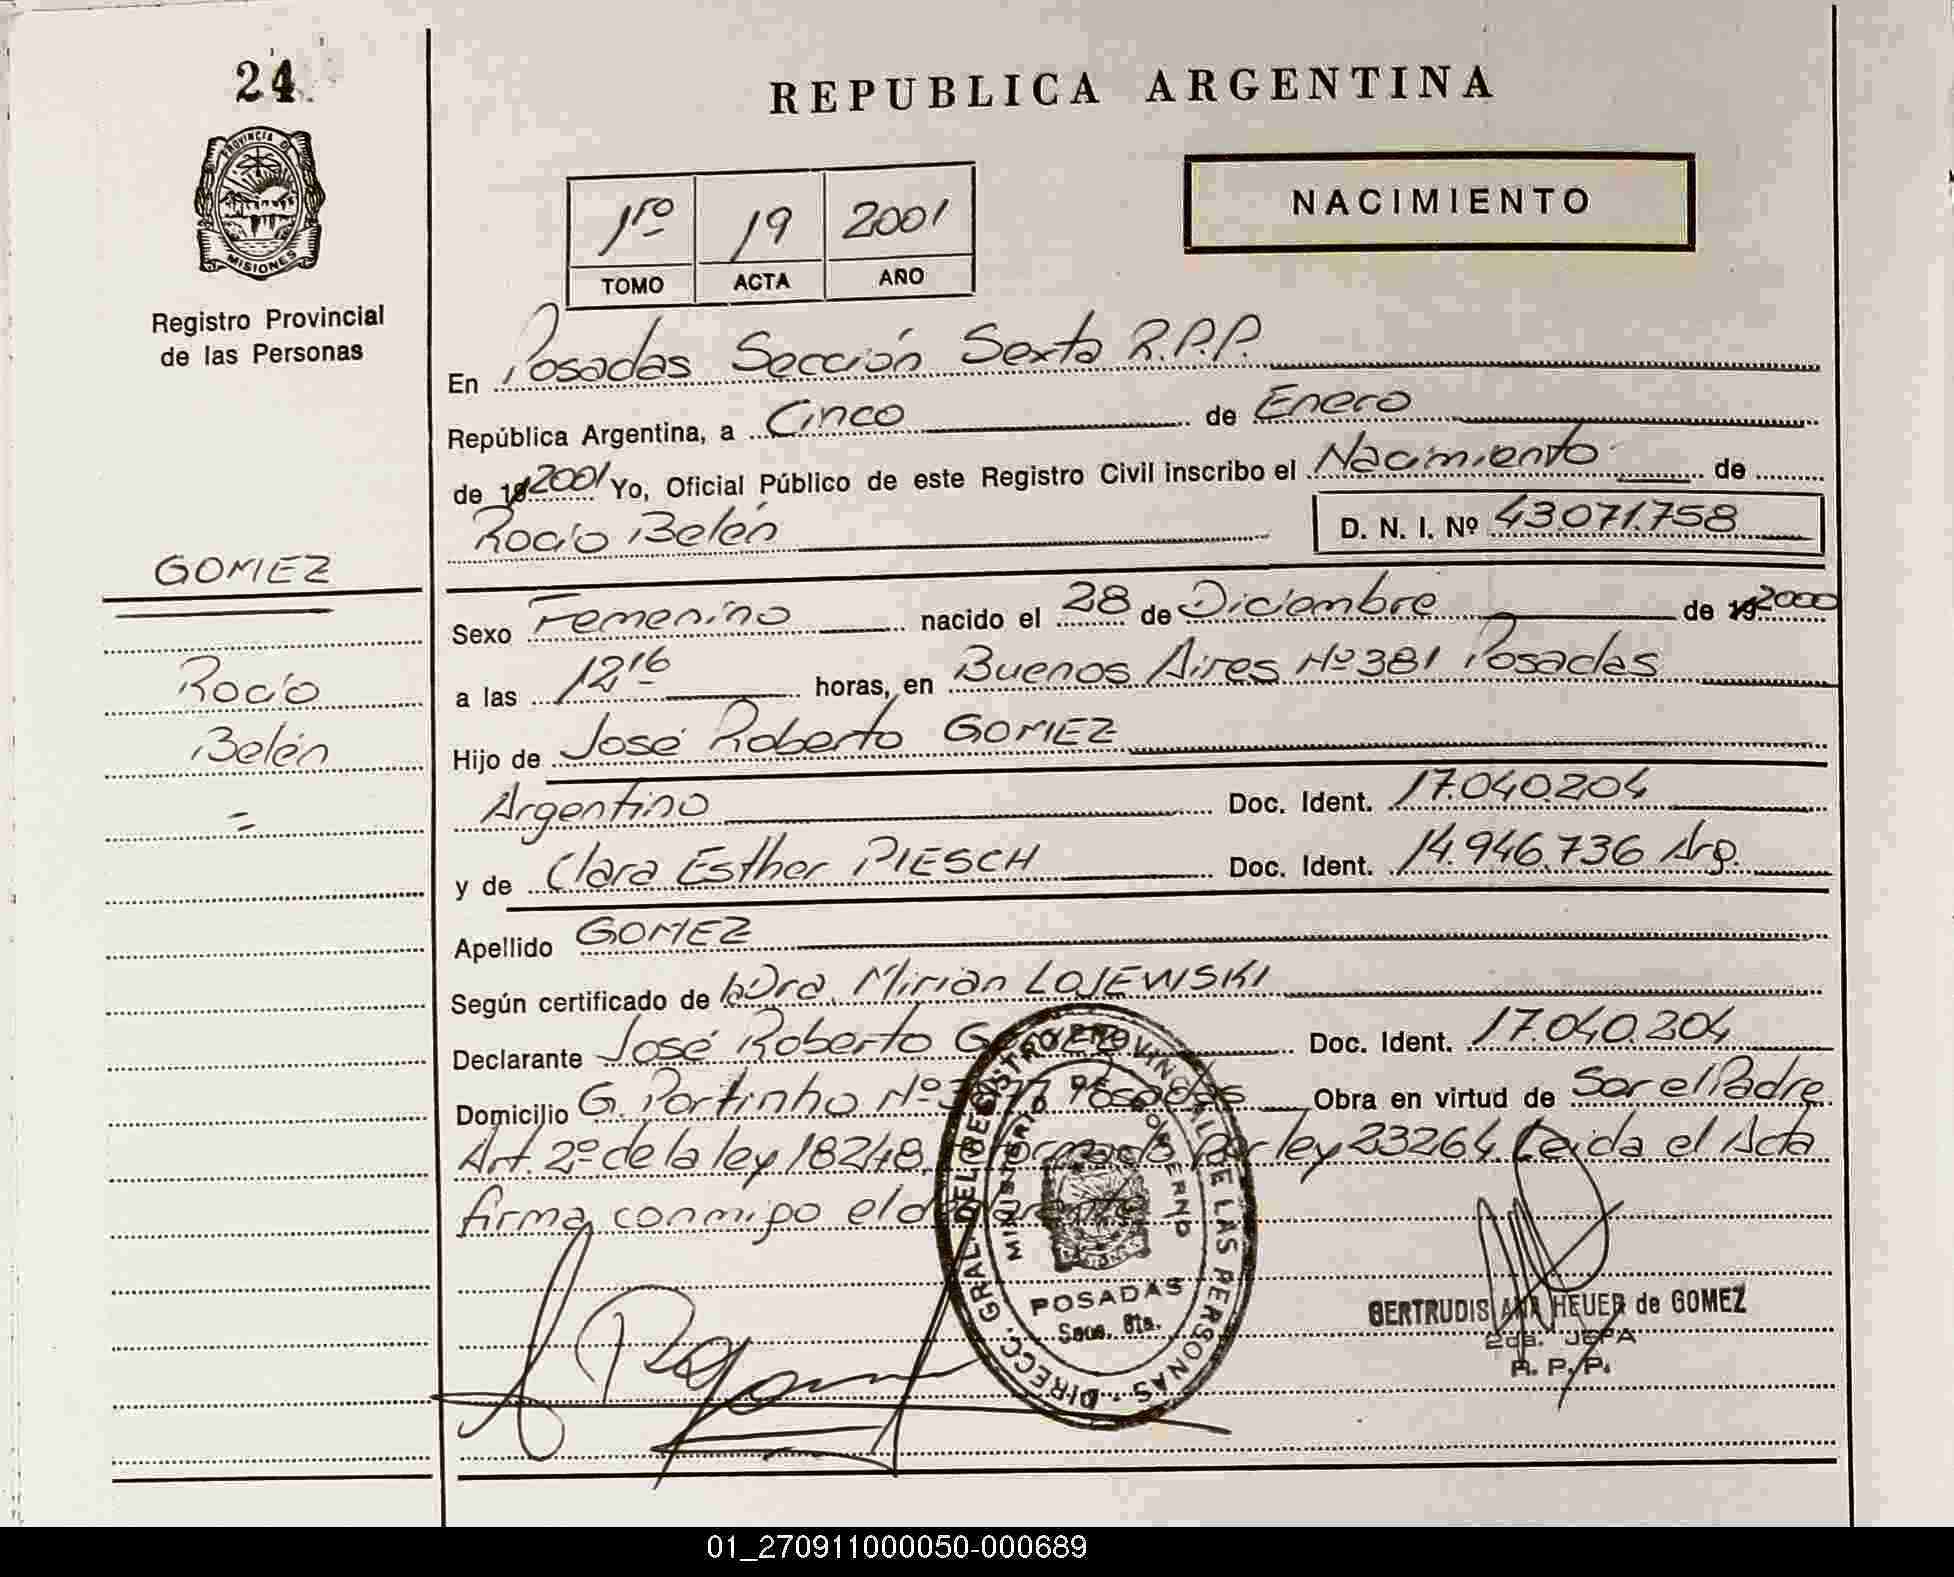 24
REPUBLICA ARGENTINA
PROVINCIA DE
MISIONES
Registro Provincial
de las Personas
1ro 19 2001
TOMO ACTA AÑO
NACIMIENTO
En Posadas Sección Sexta R.P.P.
República Argentina, a Cinco de Enero
de 192001 Yo, Oficial Público de este Registro Civil inscribo el Nacimiento de
Rocío Belén D. N. I. Nº 43.071.758
GOMEZ
Rocío
Belén
=
Sexo Femenino nacido el 28 de Diciembre de 192000
a las 12,16 horas, en Buenos Aires Nº 381 Posadas
Hijo de José Roberto GOMEZ
Argentino Doc. Ident. 17.040.204
y de Clara Esther PIESCH Doc. Ident. 14.946.736 Arg.
Apellido GOMEZ
Según certificado de la Dra. Mirian LOJEWSKI
Declarante José Roberto Doc. Ident. 17.040.204
Domicilio G. Portinho Nº Posadas Obra en virtud de Ser el Padre
Art. 2º de la ley 18248, reformado por ley 23264 Leida el Acta
firma conmigo el declarante
DIRECC. GRAL. DEL REGISTRO PROVINCIAL DE LAS PERSONAS
MINISTERIO DE GOBIERNO
POSADAS
Secc. 6ta.
GERTRUDIS ANA HEUER de GOMEZ
2da. JEFA
R. P. P.
01_270911000050-000689